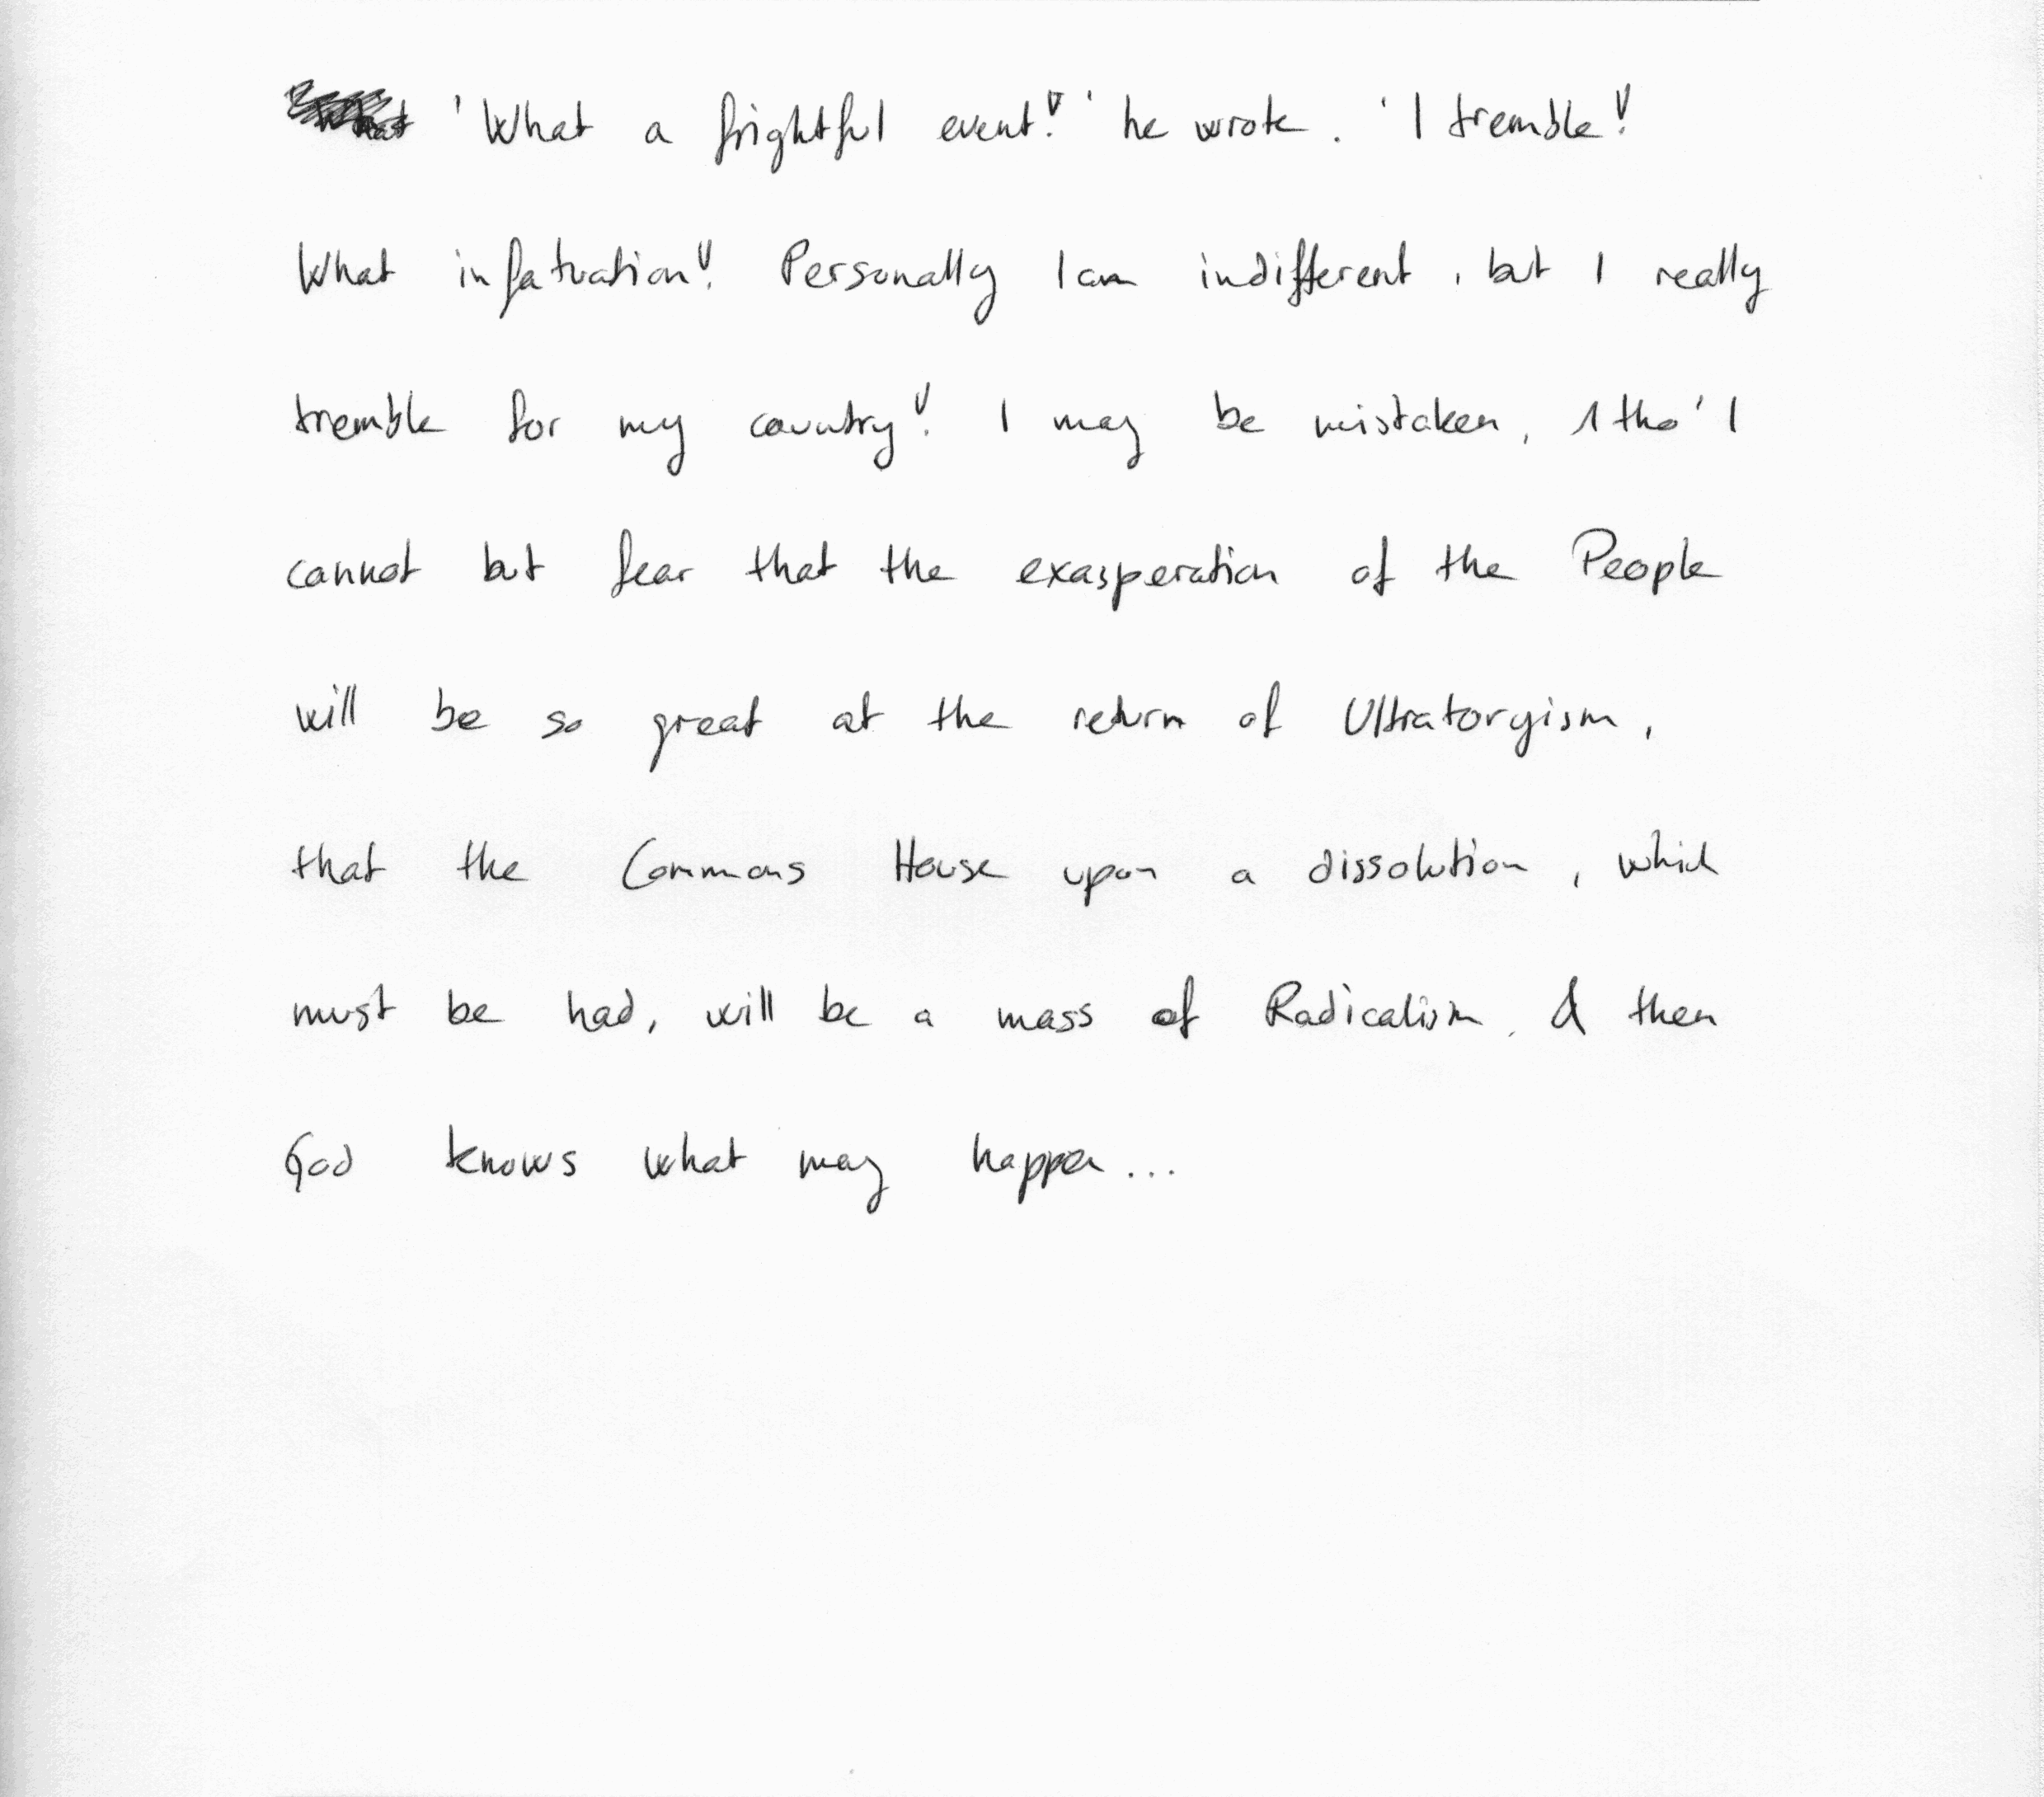 'What a frightful event!' he wrote. 'I tremble!
What infatuation! Personally I am indifferent, but I really
tremble for my country! I may be mistaken, 1 tho' I
cannot but fear that the exasperation of the People
will be so great at the return of Ultratoryism,
that the Commons House upon a dissolution, which
must be had, will be a mass of Radicalism, & then
God knows what may happen...